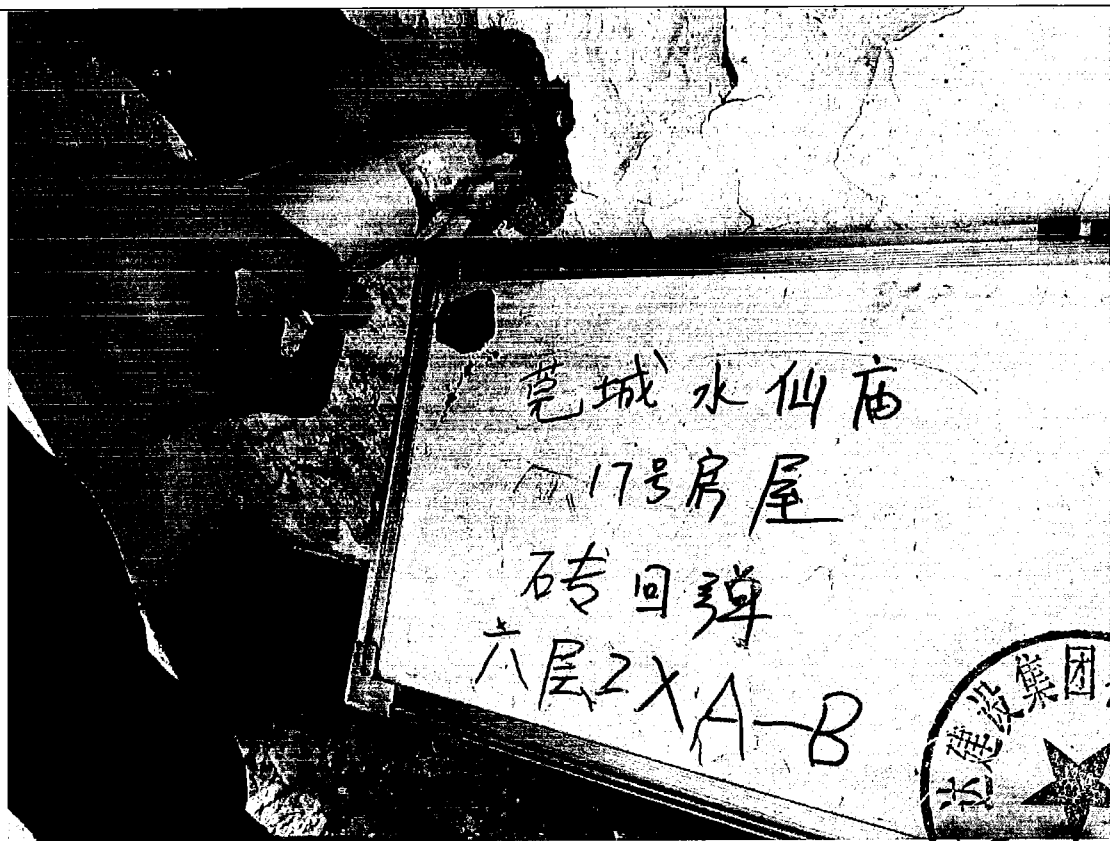 莞城水仙庙
17号房屋
砖回弹
六层2XA-B
建设集团